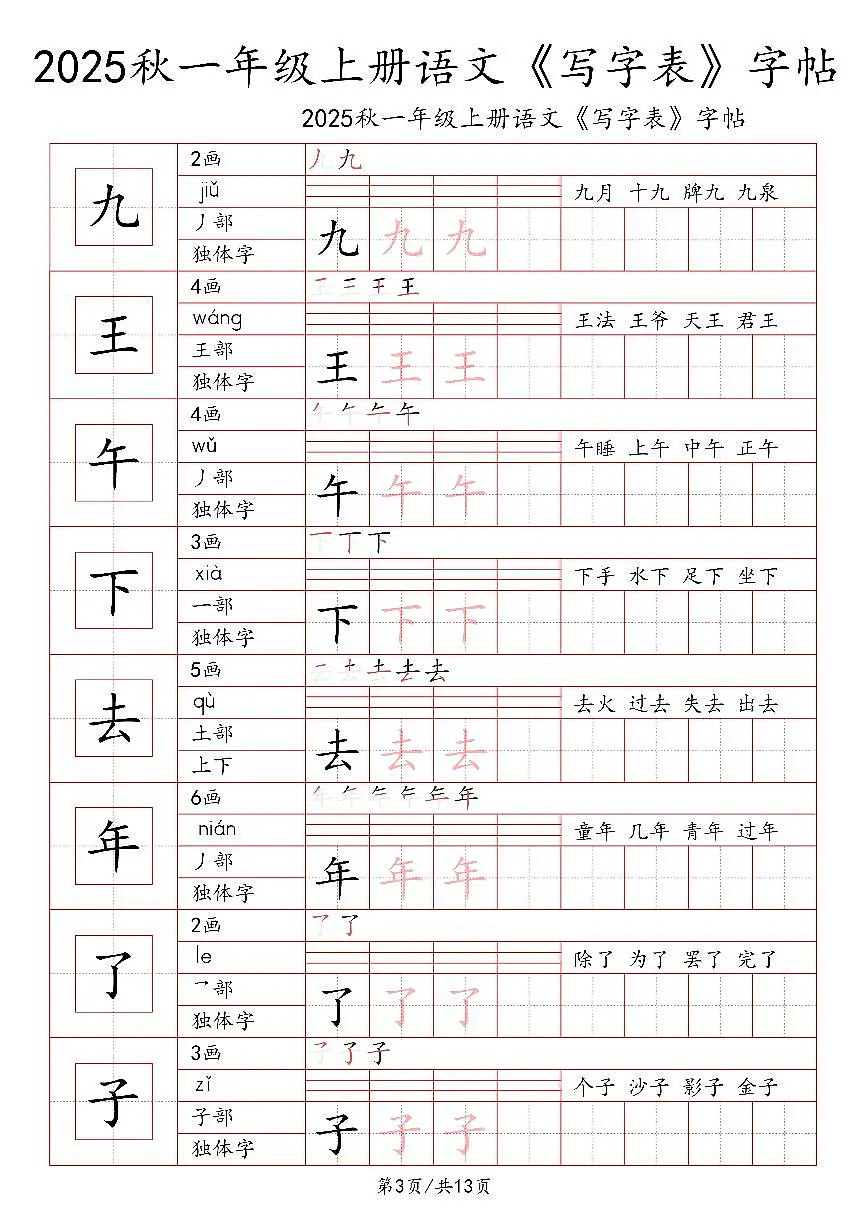 2025秋一年级上册语文《写字表》字帖
2025秋一年级上册语文《写字表》字帖
九
2画
九 九
jiǔ
九月 十九 牌九 九泉
丿部
独体字
九 九 九
王
4画
王 王 王 王
wáng
王法 王爷 天王 君王
王部
独体字
王 王 王
午
4画
午 午 午 午
wǔ
午睡 上午 中午 正午
丿部
独体字
午 午 午
下
3画
下 下 下
xià
下手 水下 足下 坐下
一部
独体字
下 下 下
去
5画
去 去 去 去 去
qù
去火 过去 失去 出去
土部
上下
去 去 去
年
6画
年 年 年 年 年 年
nián
童年 几年 青年 过年
丿部
独体字
年 年 年
了
2画
了 了
le
除了 为了 罢了 完了
乛部
独体字
了 了 了
子
3画
子 了 子
zǐ
个子 沙子 影子 金子
子部
独体字
子 子 子
第3页/共13页